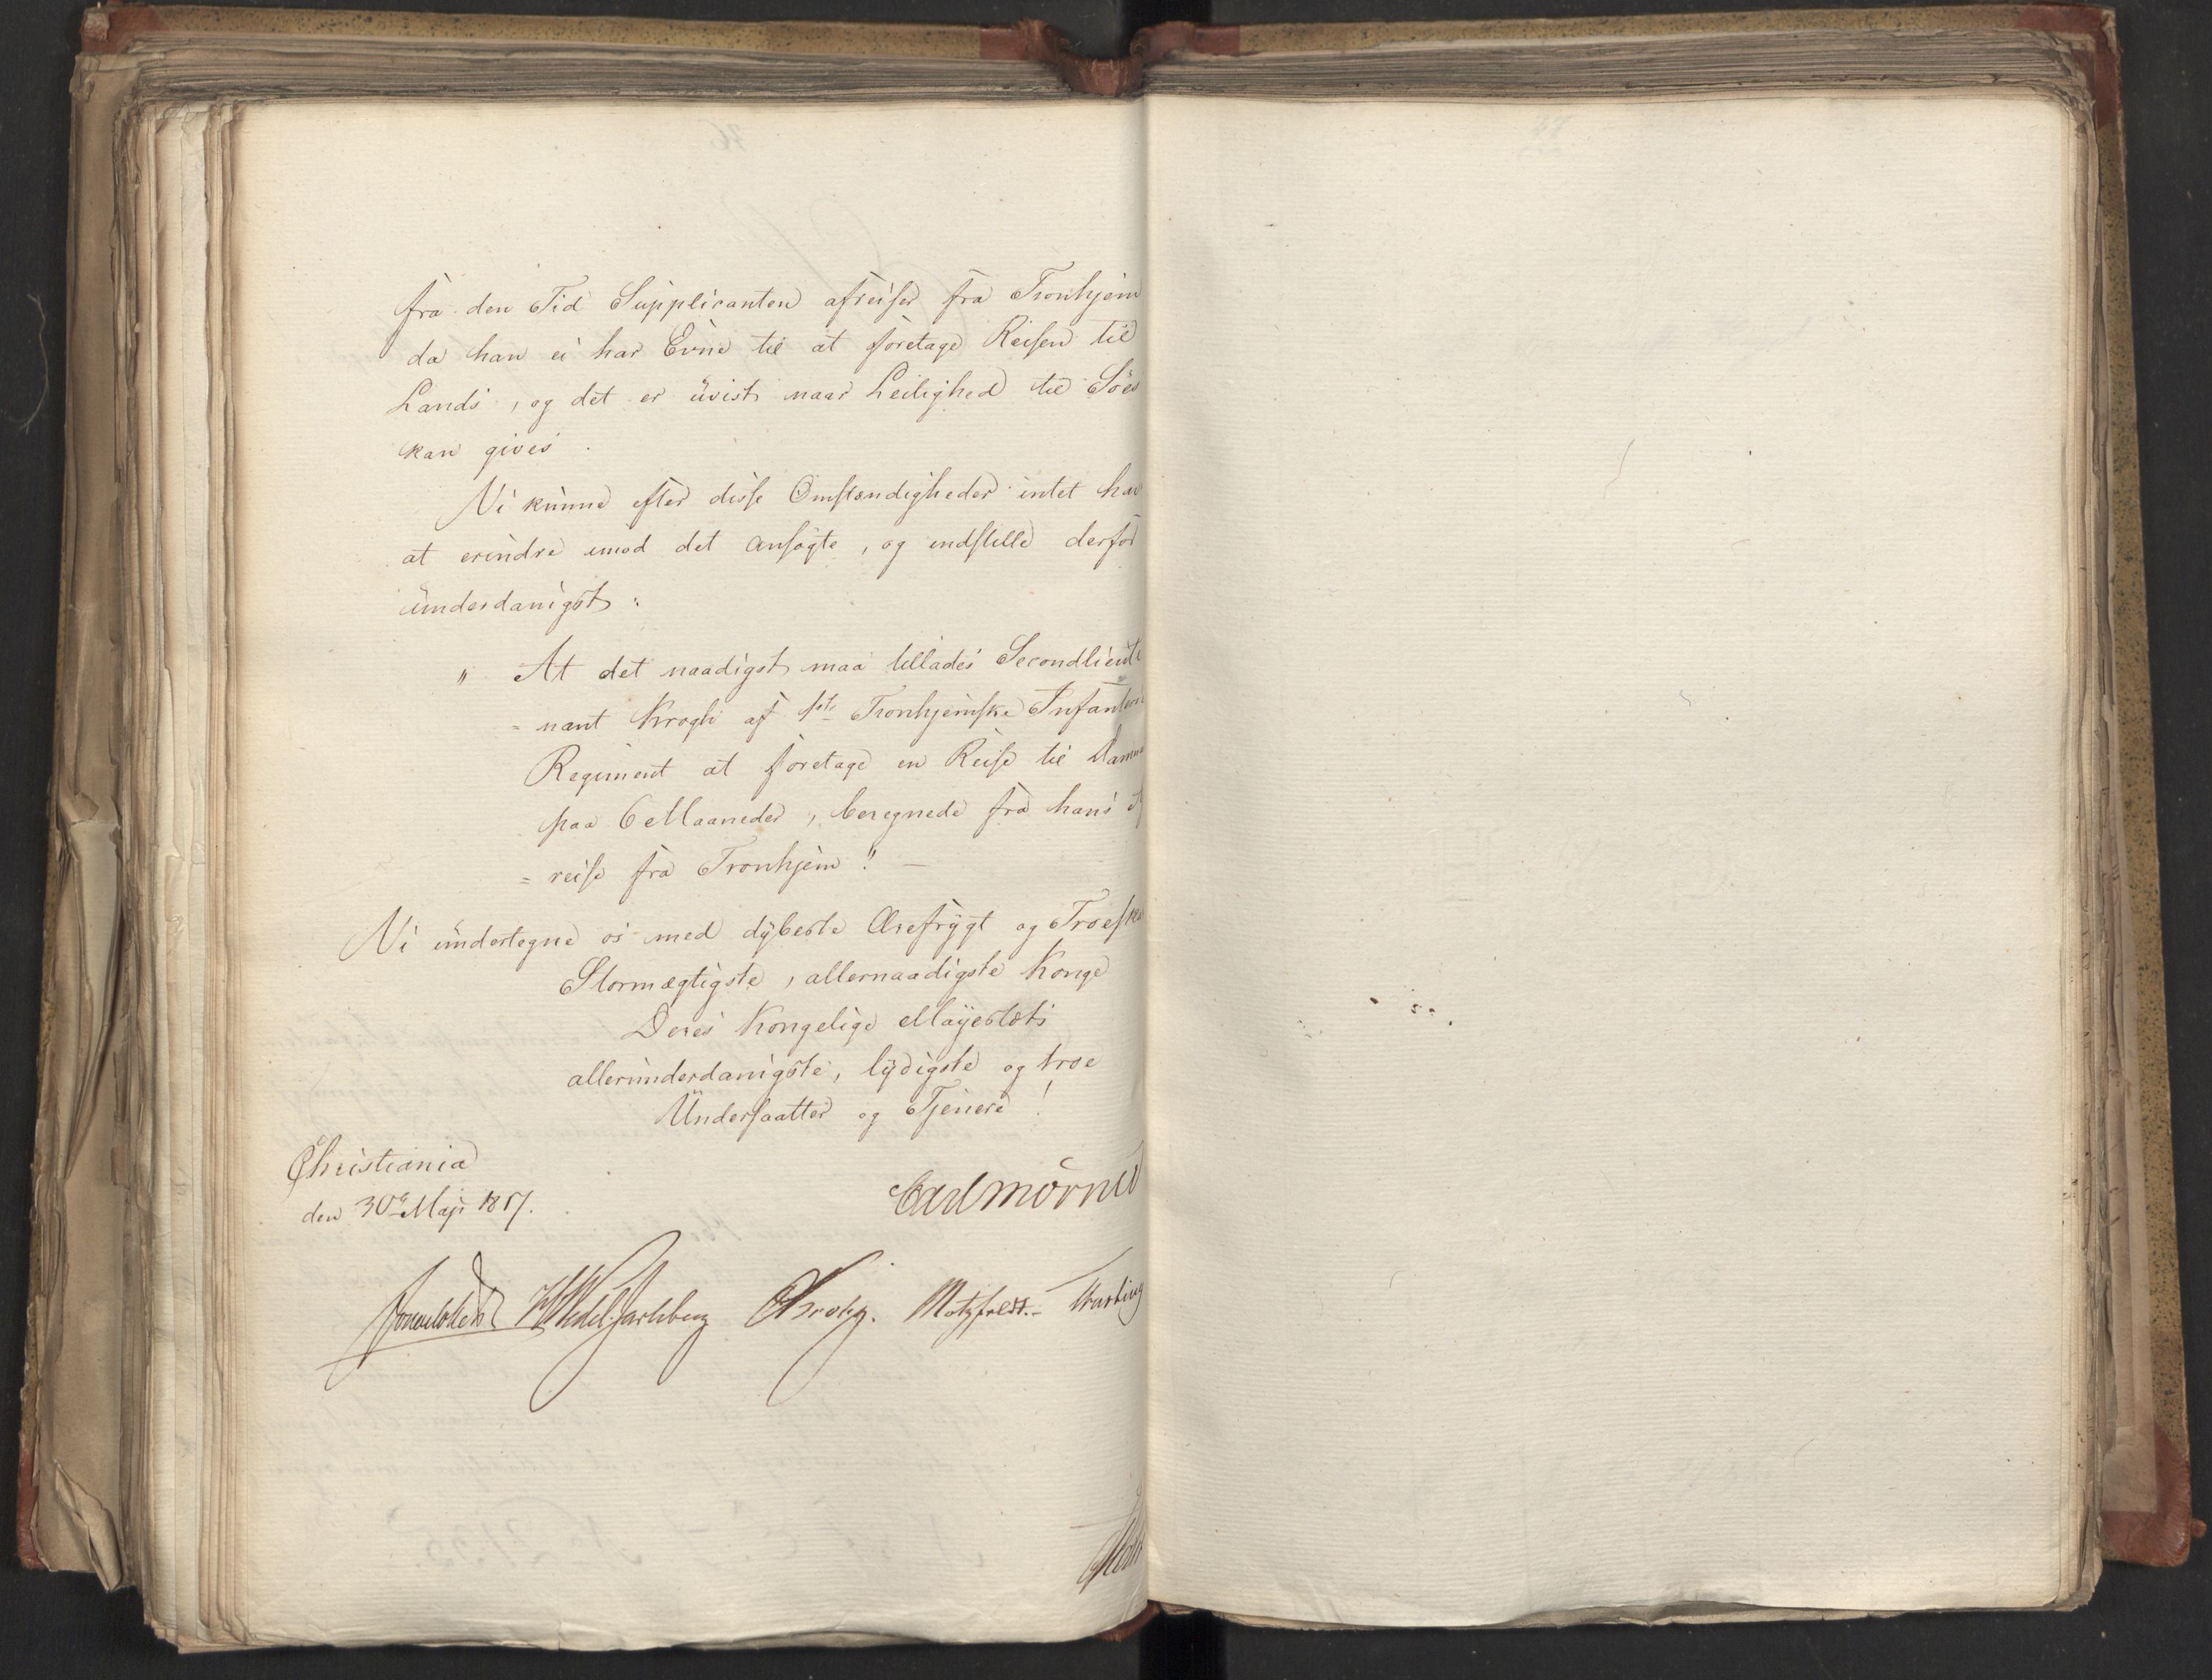 fra den Tid Supplicanten afreiser fra Tronhjem
da han ei har Evne til at foretage Reisen til
Lands, og det er uvist naar Leilighed til Söes
kan gives.
Vi kunne efter disse Omstændigheder intet have
at erindre imod det Ansögte, og indstille derfor
underdanigst:
" At det naadigst maa tillades Secondlieute
= nant Krogh af 1ste Tronhjemske Infanterie
Regiment at foretage en Reise til Danm
paa 6 Maaneder, beregnede fra hans Af
= reise fra Tronhjem". —
Vi undertegne os med dybeste Ærefrygt og Troeskab
Stormægtigste, allernaadigste Konge
Deres Kongelige Mayestæts
allerunderdanigste, lydigste og troe
Undersaatter og Tjenere!
Christiania
den 30e Maji 1817.
Carl Mörner
Sommerhielm HWedel Jarlsberg Krogh. Motzfeldt. -